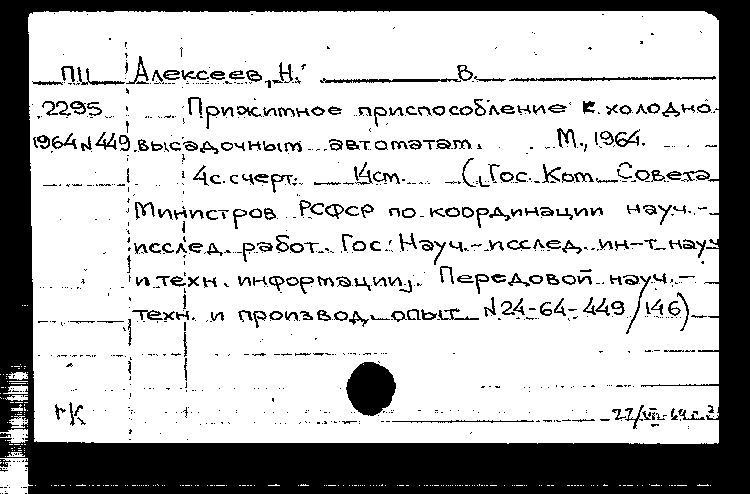 ПII Алексеев, Н. В.
2295 Прижитное приспособление к холодно-
1964 N 449 высадочным автоматам. М., 1964.
4с. с черт. 14 см. (Гос. Ком. Совета
Министров РСФСР по координации науч.-
исслед. работ. Гос. Науч.-исслед. ин-т науч
и техн. информации). Передовой науч.-
техн. и производ. опыт N 24-64-449/146)
гК